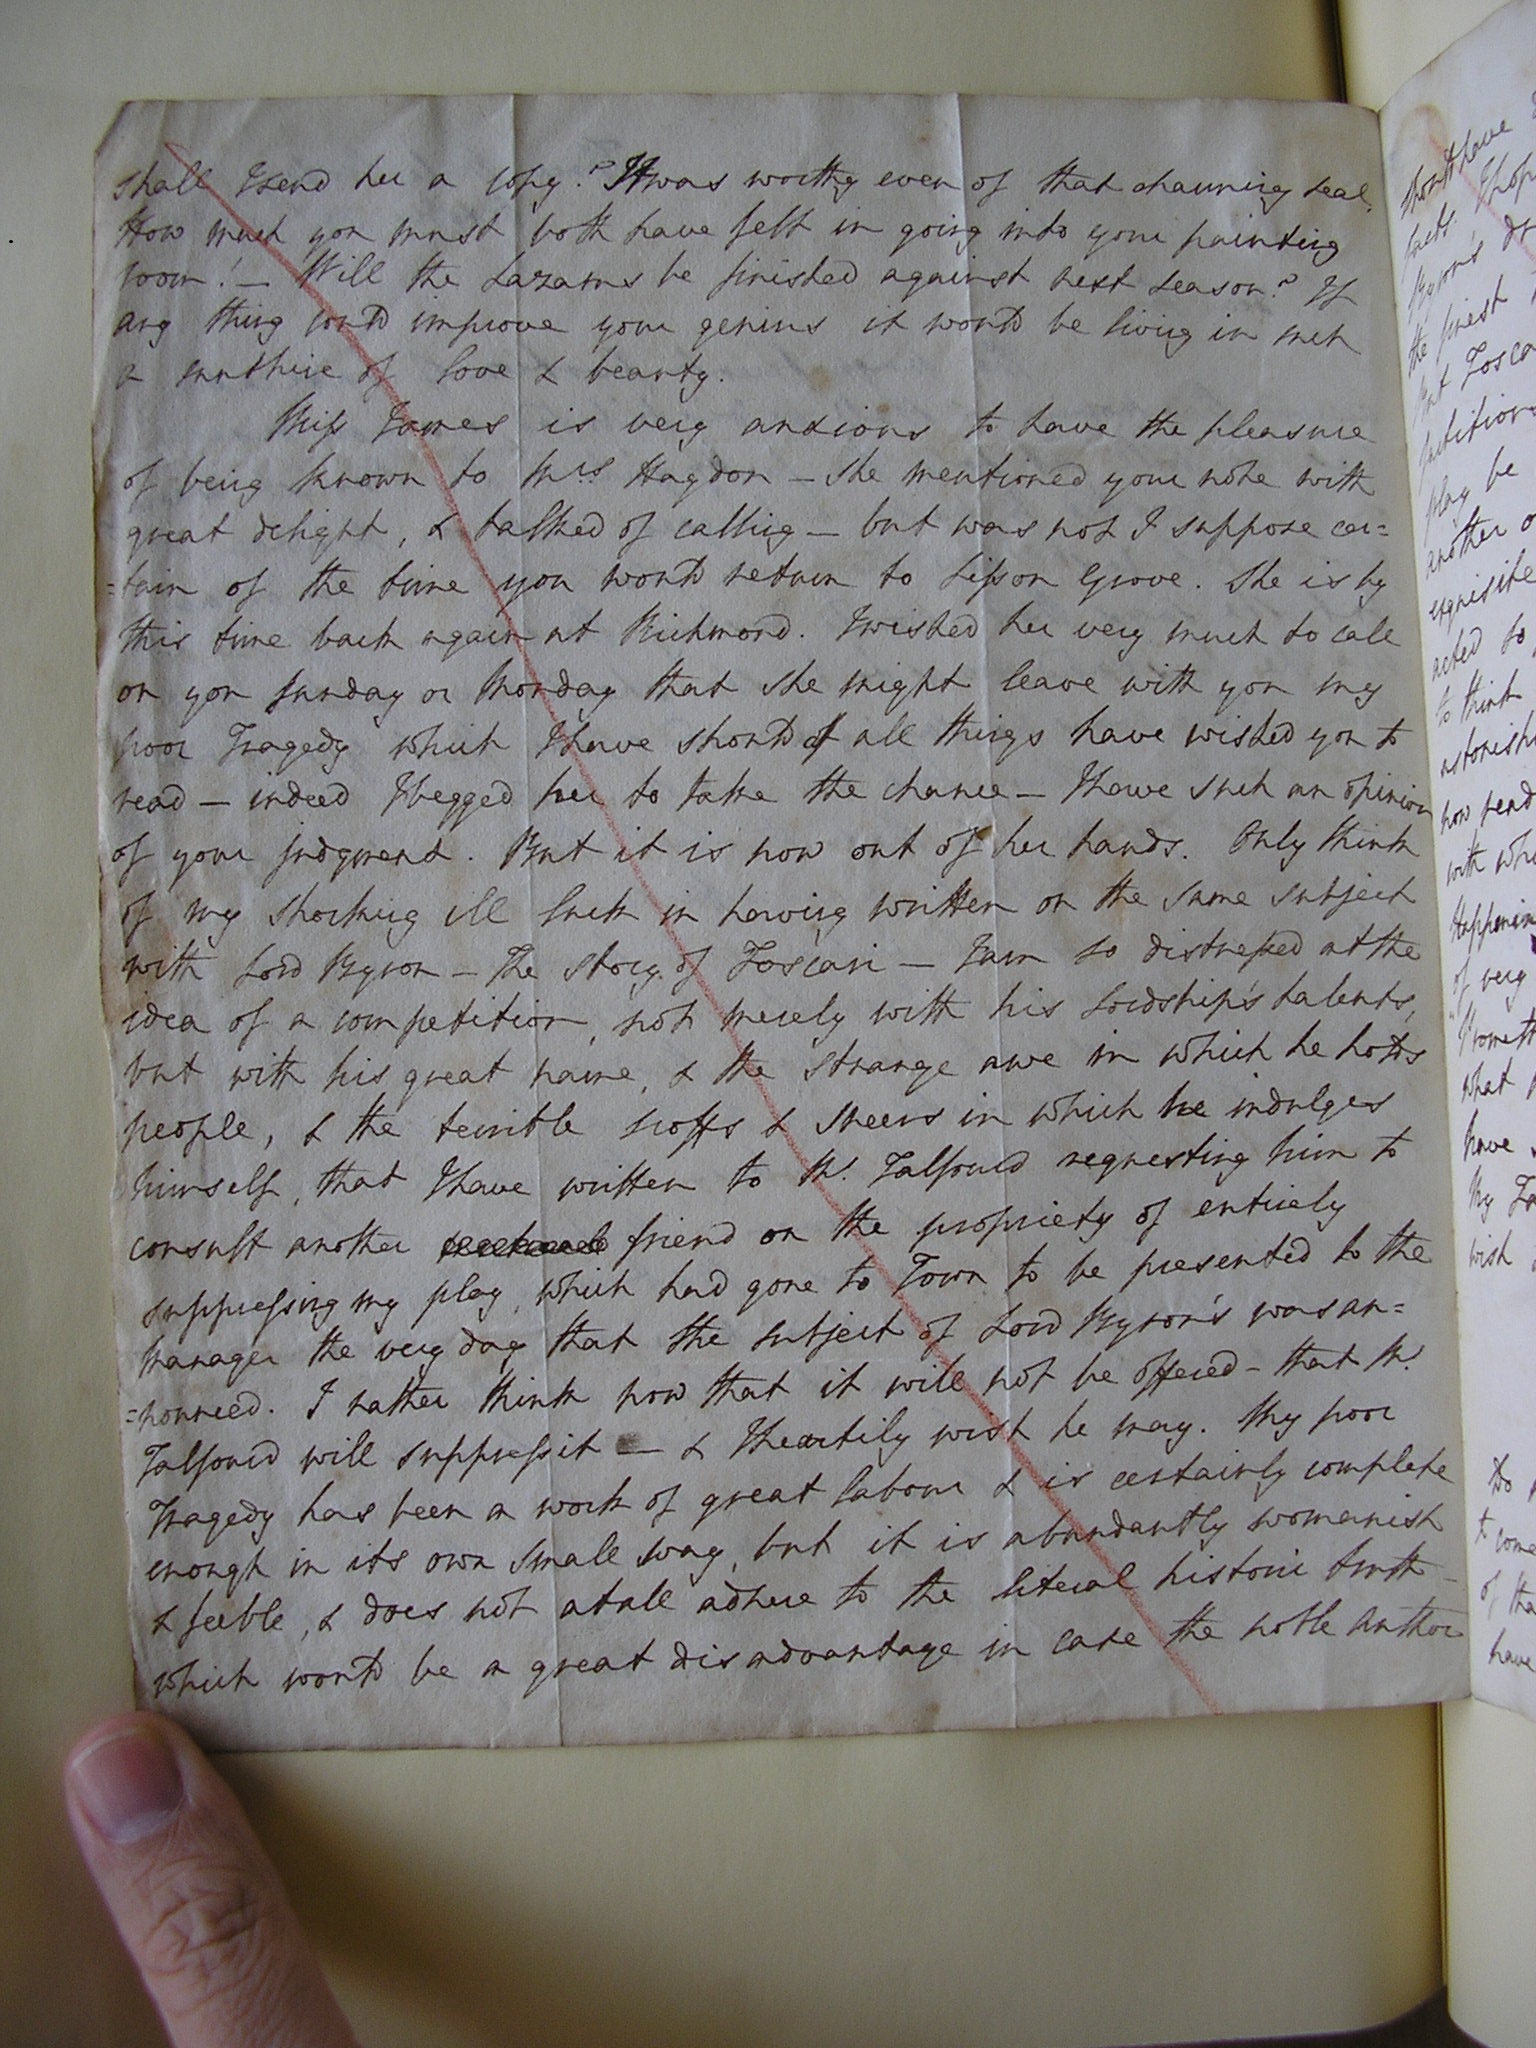 shall I send her a copy? It was worthy even of that charming seal.
How much you must both have felt in going into your painting
room! — Will the Lazarus be finished against next season? If
any thing could improve your genius it would be living in such
a sunshine of love & beauty.
Miss James is very anxious to have the pleasure
of being known to Mrs. Haydon — She mentioned your note with
great delight, & talked of calling — but was not I suppose cer=
=tain of the time you would return to Lisson Grove. She is by
this time back again at Richmond. I wished her very much to call
on you Sunday or Monday that She might leave with you my
poor Tragedy which I have should of all things have wished you to
read — indeed I begged her to take the chance — I have such an opinion
of your judgment. But it is now out of her hands. Only think
of my shocking ill luck in having written on the same subject
with Lord Byron — The story of Foscari — I am so distressed at the
idea of a competition, not merely with his Lordship's talents,
but with his great name, & the strange awe in which he holds
people, & the terrible scoffs & sneers in which he indulges
himself, that I have written to Mr. Talfourd requesting him to
consult another friend on the propriety of entirely
suppressing my play, which had gone to Town to be presented to the
Manager the very day that the subject of Lord Byron's was an=
=nounced. I rather think now that it will not be offered — that Mr.
Talfourd will suppress it — & I heartily wish he may. My poor
Tragedy has been a work of great labour & is certainly complete
enough in its own small way, but it is abundantly womanish
& feeble, & does not at all adhere to the literal historic truth —
which would be a great disadvantage in case the noble Author
should have
facts. I hope
Byron's
the finest
but Foscari
play be
another
exquisite
acted so
to think
now read
with
Happening
of very
what
have
My
wish
Do
to come
of
have